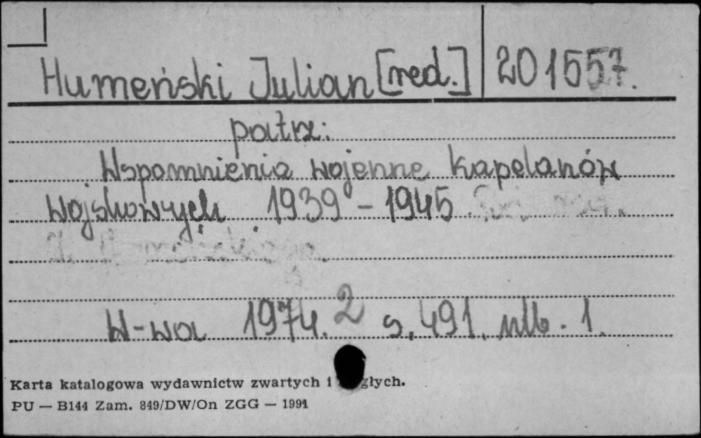 Humeński Julian [red.] 201557.
patrz:
Wspomnienia wojenne kapelanów
wojskowych 1939 - 1945
W-wa 1974. 2 s. 491. nlb. 1.
Karta katalogowa wydawnictw zwartych i
PU — B144 Zam. 849/DW/On ZGG — 1991